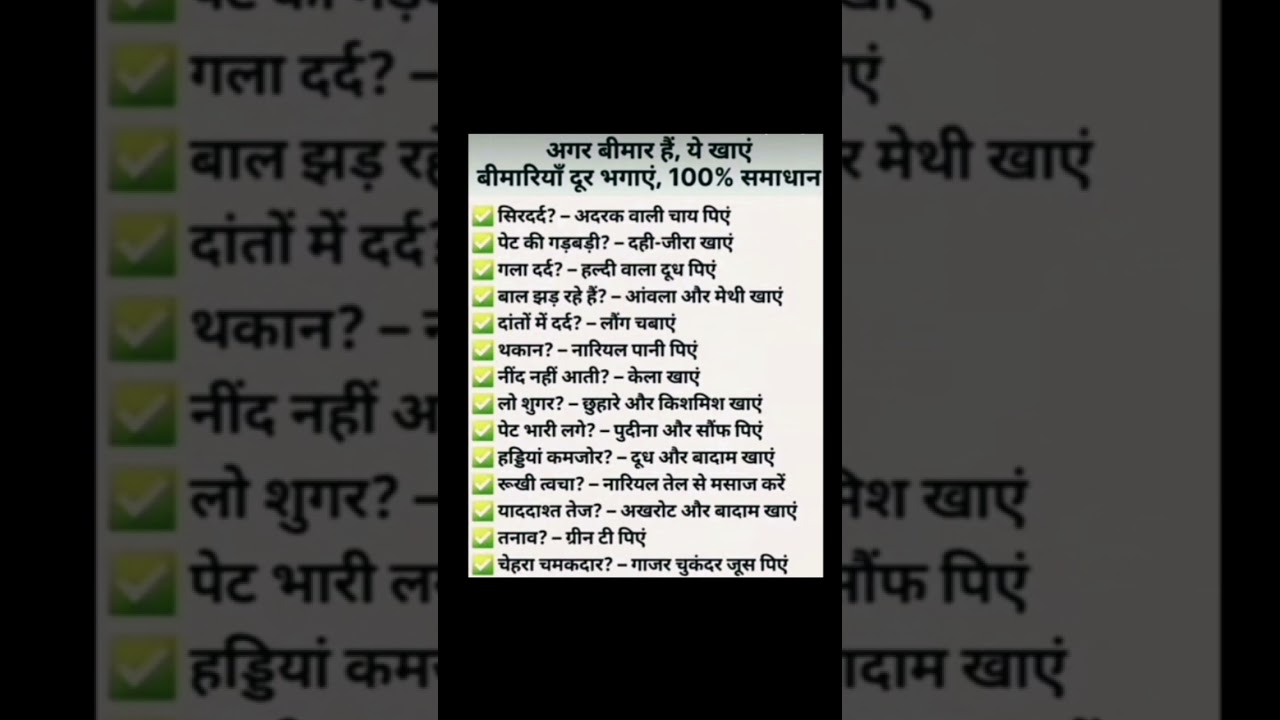 अगर बीमार हैं, ये खाएं
बीमारियाँ दूर भगाएं, 100% समाधान
✅ सिरदर्द? – अदरक वाली चाय पिएं
✅ पेट की गड़बड़ी? – दही-जीरा खाएं
✅ गला दर्द? – हल्दी वाला दूध पिएं
✅ बाल झड़ रहे हैं? – आंवला और मेथी खाएं
✅ दांतों में दर्द? – लौंग चबाएं
✅ थकान? – नारियल पानी पिएं
✅ नींद नहीं आती? – केला खाएं
✅ लो शुगर? – छुहारे और किशमिश खाएं
✅ पेट भारी लगे? – पुदीना और सौंफ पिएं
✅ हड्डियां कमजोर? – दूध और बादाम खाएं
✅ रूखी त्वचा? – नारियल तेल से मसाज करें
✅ याददाश्त तेज? – अखरोट और बादाम खाएं
✅ तनाव? – ग्रीन टी पिएं
✅ चेहरा चमकदार? – गाजर चुकंदर जूस पिएं